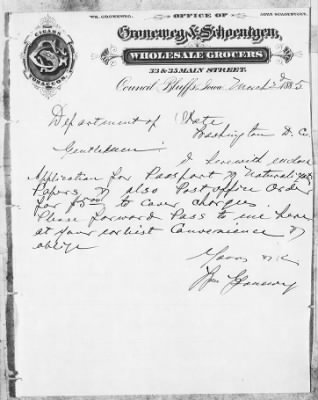 WM. GRONEWEG.
OFFICE OF
JOHN SCHOENTGEN.
Groneweg & Schoentgen,
WHOLESALE GROCERS
33 & 35 MAIN STREET.
CIGARS
TOBACCOS
Council Bluffs, Iowa, March 2d 1885
Department of State
Washington D. C.
Gentlemen
I herewith enclose
Application for Passport & Naturalization
Papers & also Post office Order
for $5.00 to cover charges.
Please forward Pass to me here
at your earliest Convenience &
oblige
Yours &c
Wm Groneweg